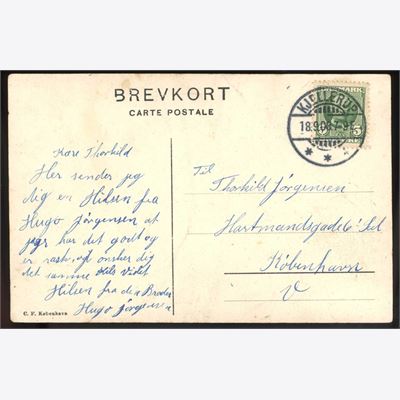 BREVKORT
CARTE POSTALE
KJELLERUP
18.9.08
DANMARK
5
Kære Thorkild
Her sender jeg
dig en Hilsen fra
Hugo Jørgensen at
jeg har det godt og
er rask, og ønsker dig
det samme
Hilsen fra din Broder
Hugo Jørgensen
C. F. København
Til
Thorkild Jørgensen
Hartmandsgade 6
København
V